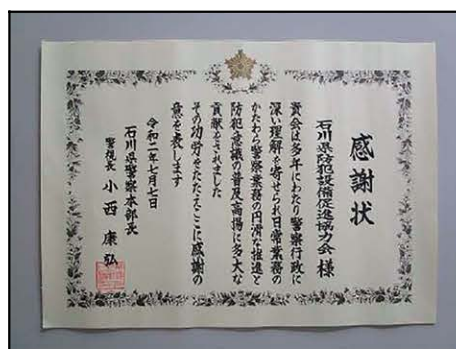 感謝状
石川県防犯設備促進協力会 様
貴会は多年にわたり警察行政に
深い理解を寄せられ日常業務の
かたわら警察業務の円滑な推進と
防犯意識の普及高揚に多大な
貢献をされました
その功労をたたえここに感謝の
意を表します
令和二年七月七日
石川県警察本部長
警視長 小西 康弘